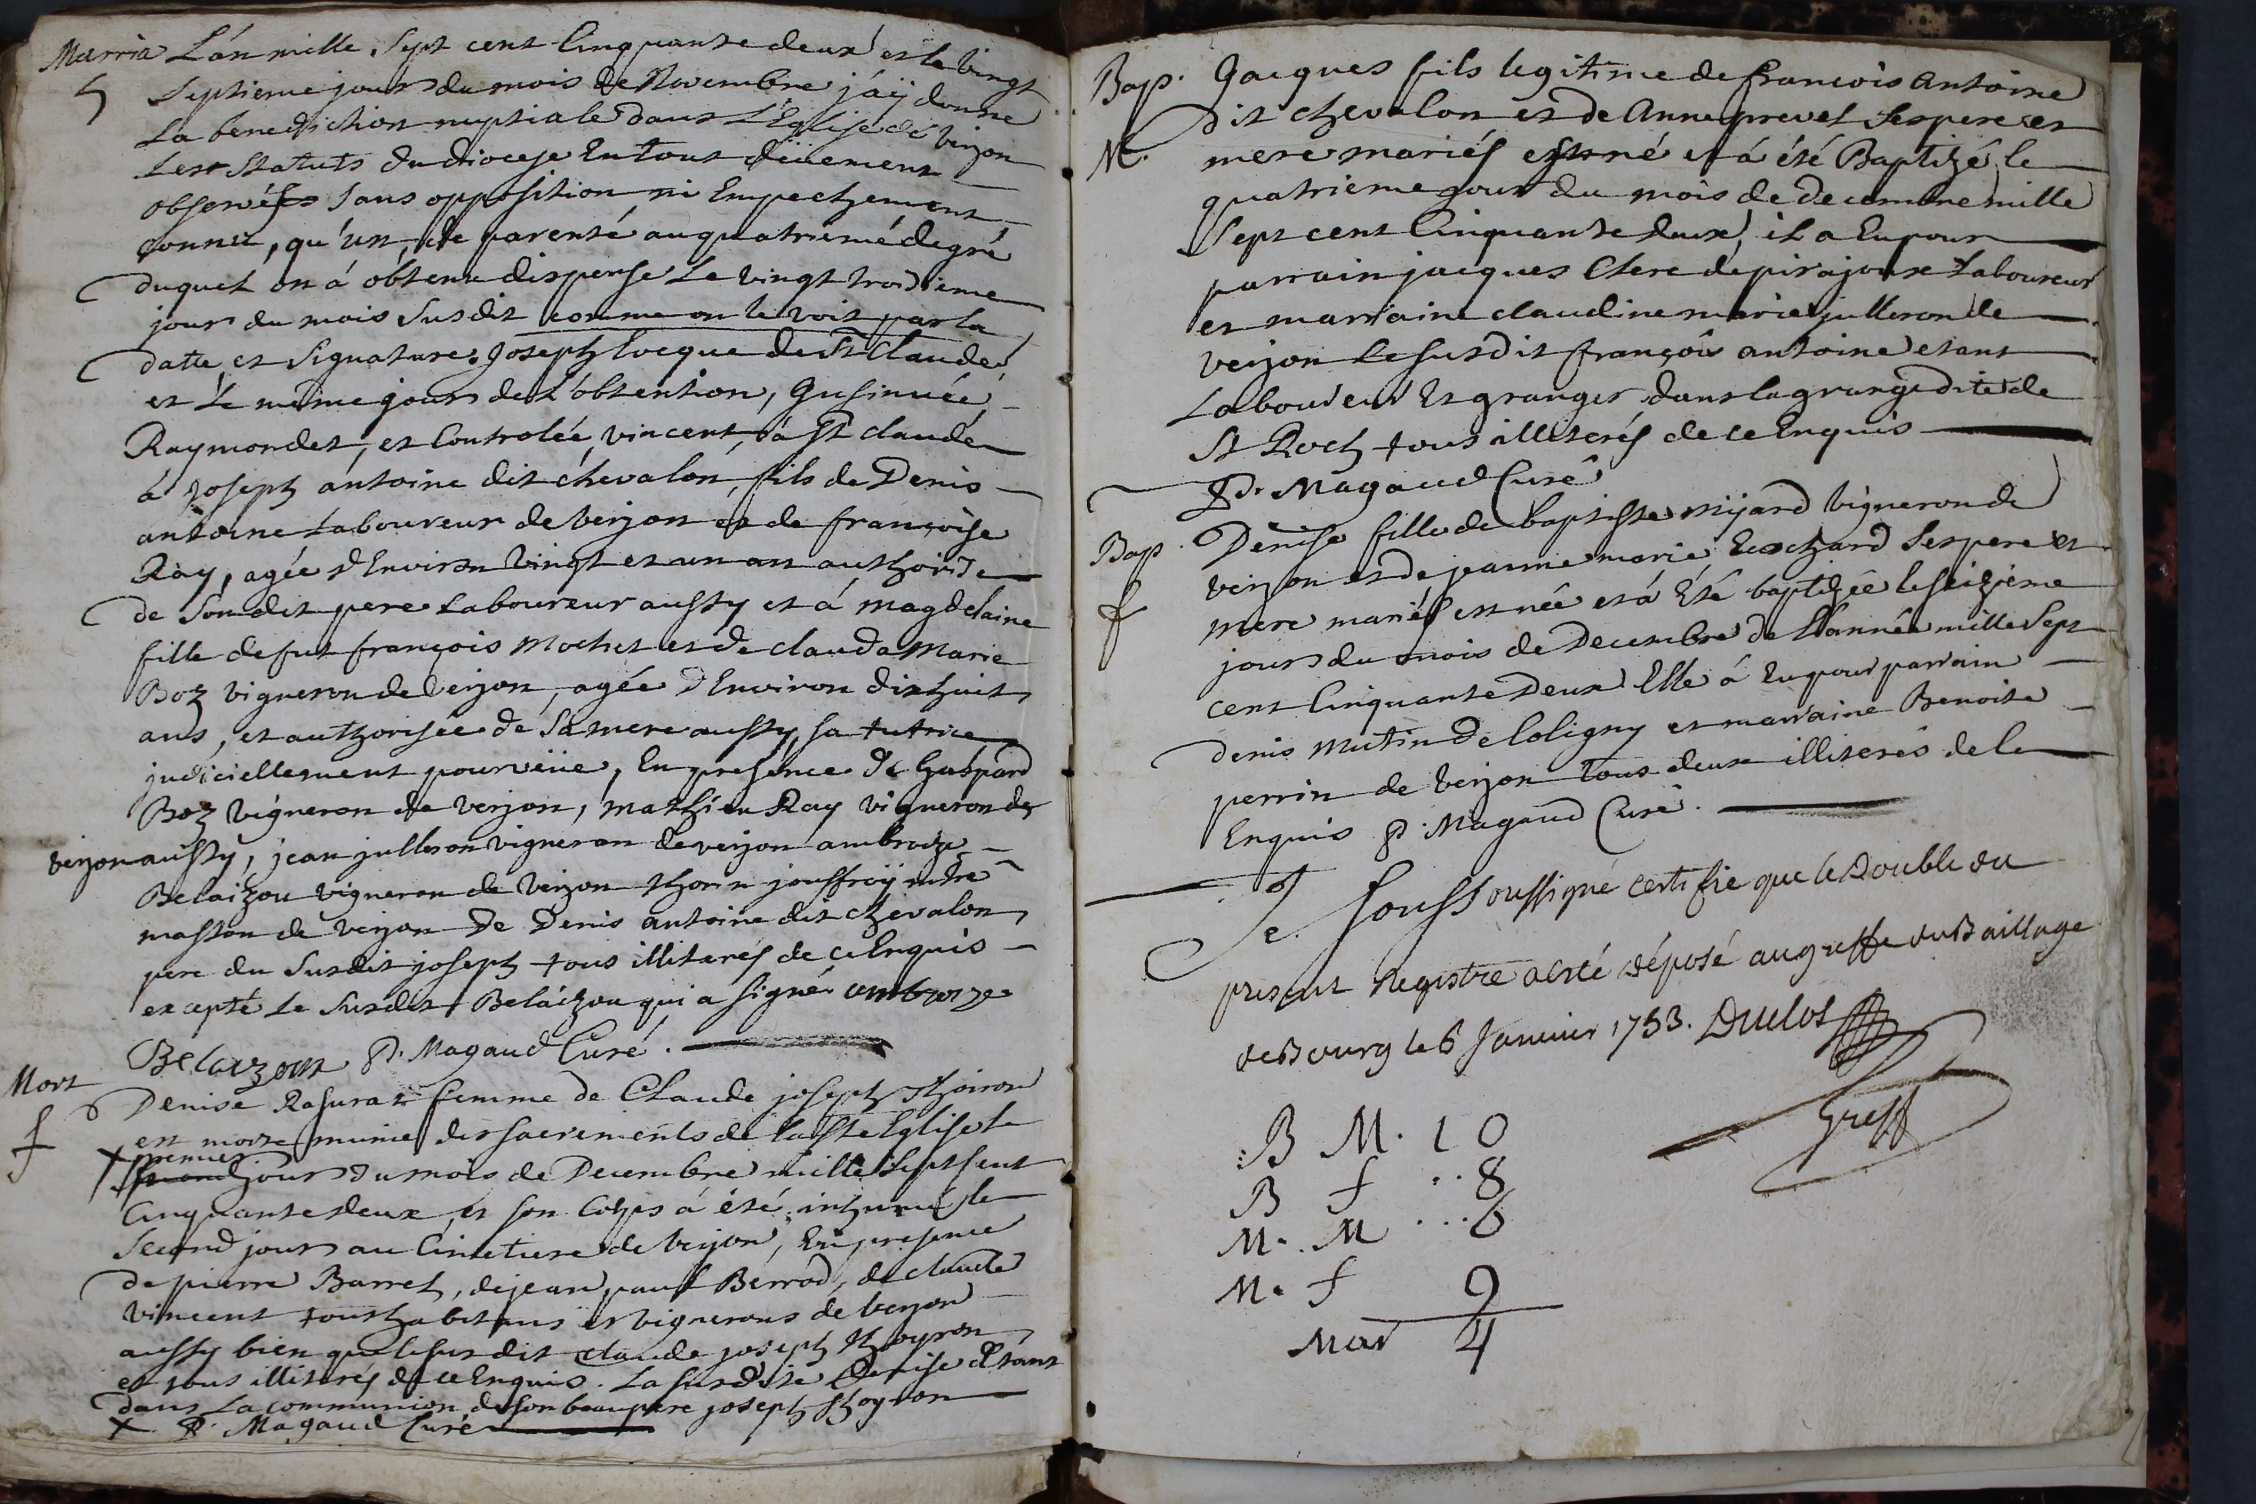 Marria L'an mille Sept cent Cinquante deux et le vingt
Septieme jour du mois de Novembre j'aÿ donne
La benediction nuptiale dans L'Eglise de verjon
Les Statuts du diocese En tout düement
observés Sans opposition ni Empechement
connu, qu'un de parenté au quatrieme degré
duquel on á obtenu dispense Le vingt troisieme
jour du mois Susdit comme on le voit par la
datte et Signature Joseph Eveque de St Claude,
et Le même jour de L'obtention, Insinuée
Raymondet, et Controlée, vincent, à St claude
á Joseph antoine dit chevalon, fils de Denis
antoine Laboureur de verjon et de françoise
Ray, agée d'Environ vingt et un ans authorisé
de Son dit pere Laboureur aussy et á Magdelaine
fille de fut françois Mochet et de clauda Marie
Boz vigneron de verjon, agée d'Environ dixhuit
ans, et authorisée de Sa mere aussy, sa tutrice
judiciellement pourvëüe, En presence de Gaspard
Boz vigneron de verjon, mathieu Ray vigneron de
verjon aussy, jean julleron vigneron de verjon ambroize
Belaizou vigneron de verjon jouffroÿ mtre
masson de verjon De Denis antoine dit chevalon
pere du Susdit joseph tous illiterés de ce Enquis
excepté Le Susdit Belaizou qui a signé ambroize
Belaizoux P. Magaud Curé.
Mort Denise Rasurat femme de Claude joseph Thoiron
f est morte munie des sacrements de la Ste Eglise le
x premier
jour du mois de Decembre mille Sept Cent
Cinquante deux, et son Corps á été inhumé le
Second jour au Cimetiere de verjon, En presence
de pierre Barret, de jean paul Berrod, de claude
vincent tous habitans et vignerons de verjon
aussy bien que le susdit claude joseph thoyron
et tous illiterés de ce Enquis. La susdite Denise etant
dans La communion de son beaupere joseph thoyron
x P. Magaud Curé
Bap. Jacques fils legitime de françois Antoine
dit chevalon et de Anne prevet Ses pere et
M. mere mariés est né et á été Baptizé le
quatrieme jour du mois de decembre mille
Sept cent Cinquante deux, il a Eu pour
parrain jacques Clerc de pirajoux Laboureur
et marraine claudine marie julleron de
verjon Le susdit françois antoine etant
Laboureur Et granger dans la grange dite de
St Roch tous illiterés de ce Enquis
P. Magaud Curé
Bap. Denise fille de baptiste mijard vigneron de
verjon et de jeanne marie Ecochard Ses pere et
f mere mariés est née et á Eté baptizée le seizieme
jour du mois de Decembre de L'année mille Sept
cent Cinquante Deux Elle á Eu pour parrain
denis Mutin de Coligny et marraine Benoite
perrin de verjon tous deux illiterés de Ce
Enquis P. Magaud Curé.
Je Soussigné certifie que le Double du
present Registre a esté déposé au greffe du Baillage
de Bourg le 6 Janvier 1753. Duclos
Greff
B M. 10
B f .. 8
M. M ... 6
M. f 9
Mar 4